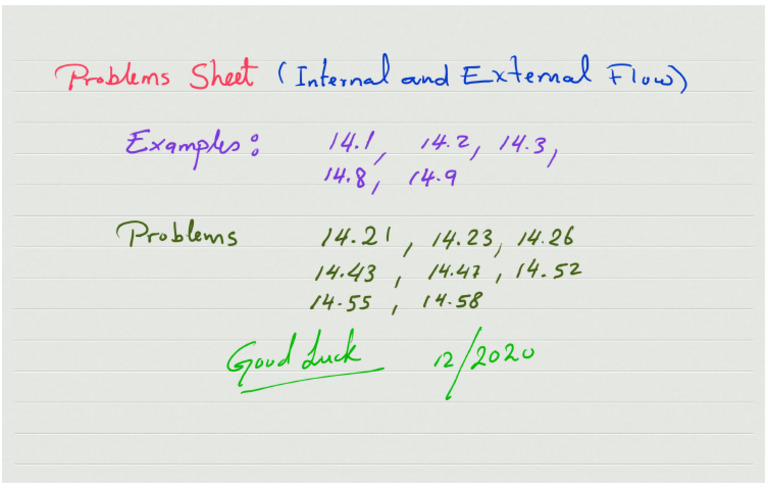 Problems Sheet (Internal and External Flow)
Examples: 14.1, 14.2, 14.3,
14.8, 14.9
Problems 14.21, 14.23, 14.26
14.43, 14.47, 14.52
14.55, 14.58
Good Luck 12/2020